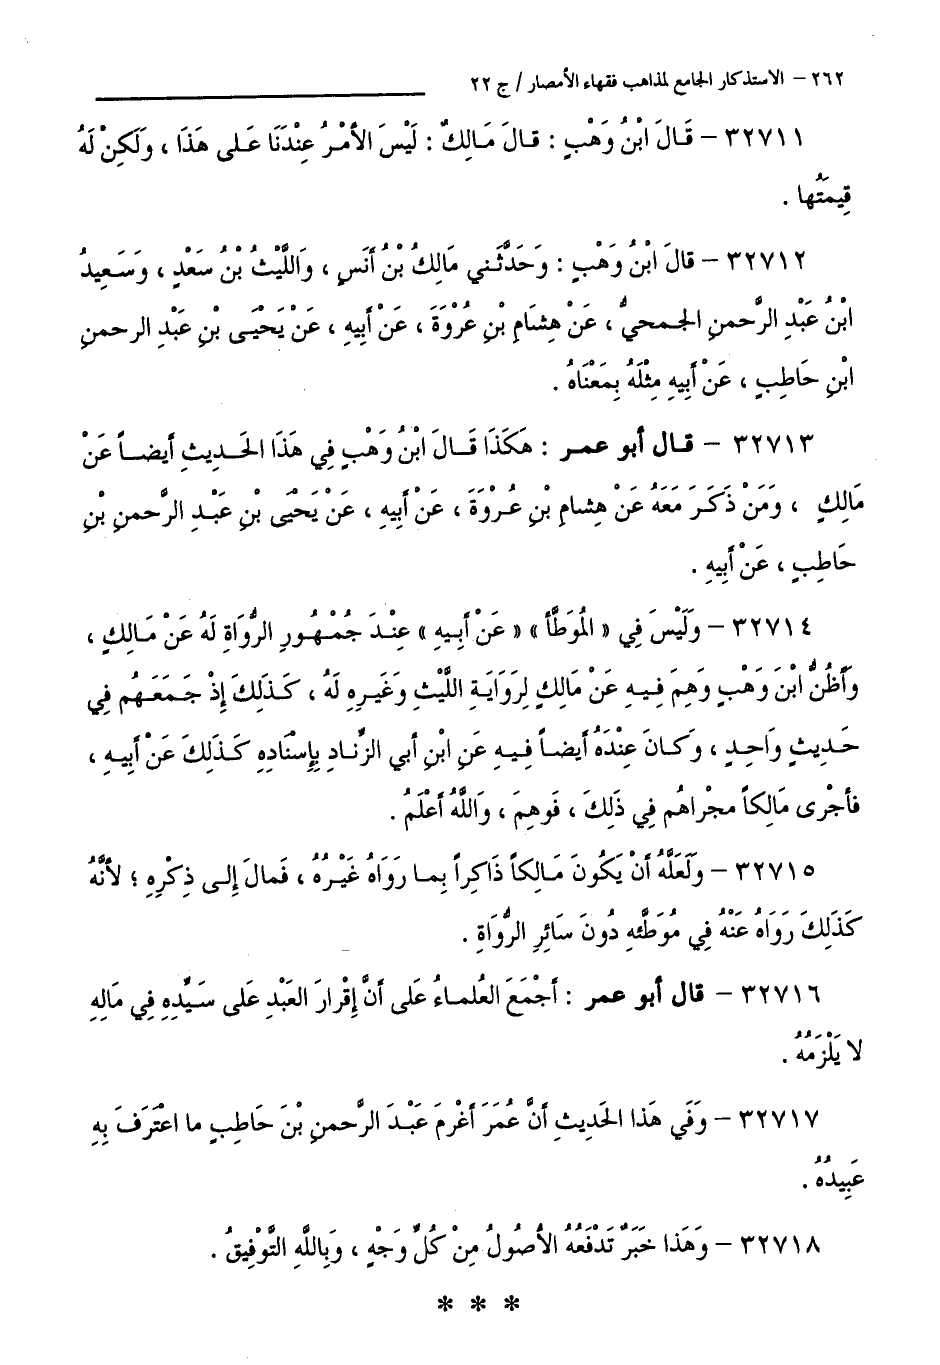 ٢٦٢ – الاستذكار الجامع لمذاهب فقهاء الأمصار / ج ٢٢
٣٢٧١١ – قَالَ ابْنُ وَهْبٍ : قالَ مَالِكٌ : لَيْسَ الأَمْرُ عِنْدَنَا عَلى هَذَا ، وَلَكِنْ لَهُ
قِيمَتُها .
٣٢٧١٢ – قالَ ابْنُ وَهْبٍ : وَحَدَّثَنِي مَالِكُ بْنُ أَنَسٍ ، وَاللَّيْثُ بْنُ سَعْدٍ ، وَسَعِيدُ
ابْنُ عَبْدِ الرَّحمنِ الجمحيُّ ، عَنْ هِشَامِ بْنِ عُرْوَةَ ، عَنْ أَبِيهِ ، عَنْ يَحْيَى بْنِ عَبْدِ الرحمنِ
ابْنِ حَاطِبٍ ، عَنْ أَبِيهِ مِثْلَهُ بِمَعْنَاهُ .
٣٢٧١٣ – قال أبو عمر : هَكَذَا قَالَ ابْنُ وَهْبٍ فِي هَذَا الحَدِيثِ أيضاً عَنْ
مَالِكٍ ، وَمَنْ ذَكَرَ مَعَهُ عَنْ هِشامِ بْنِ عُرْوَةَ ، عَنْ أَبِيهِ ، عَنْ يَحْيَى بْنِ عَبْدِ الرَّحمنِ بْنِ
حَاطِبٍ ، عَنْ أَبِيهِ .
٣٢٧١٤ – وَلَيْسَ فِي « المُوَطَّأ » « عَنْ أَبِيهِ » عِنْدَ جُمْهُورِ الرُّوَاةِ لَهُ عَنْ مَالِكٍ ،
وَأَظُنُّ ابْنَ وَهْبٍ وَهِمَ فِيهِ عَنْ مَالِكٍ لِرِوَايَةِ اللَّيْثِ وَغَيرِهِ لَهُ ، كَذَلِكَ إِذْ جَمَعَهُم فِي
حَدِيثٍ وَاحِدٍ ، وَكَانَ عِنْدَهُ أيضاً فِيهِ عَنِ ابْنِ أبي الزِّنَادِ بِإِسْنَادِهِ كَذَلِكَ عَنْ أَبِيهِ ،
فأَجْرى مَالِكاً مجْراهُم فِي ذَلِكَ ، فَوهِمَ ، وَاللَّهُ أَعْلَمُ .
٣٢٧١٥ – وَلَعَلَّهُ أَنْ يَكُونَ مَالِكاً ذَاكِراً بِما رَوَاهُ غَيْرُهُ ، فَمالَ إِلى ذِكْرِهِ ؛ لأنَّهُ
كَذَلِكَ رَوَاهُ عَنْهُ فِي مُوَطَّئِهِ دُونَ سَائِرِ الرُّوَاةِ .
٣٢٧١٦ – قال أبو عمر : أَجْمَعَ العُلماءُ عَلى أَنَّ إِقْرارَ العَبْدِ عَلى سَيِّدِهِ فِي مَالِهِ
لا يَلْزَمُهُ .
٣٢٧١٧ – وَفِي هَذا الحَدِيثِ أَنَّ عُمَرَ أَغْرمَ عَبْدَ الرَّحمنِ بْنَ حَاطِبٍ ما اعْتَرَفَ بِهِ
عَبِيدُهُ .
٣٢٧١٨ – وَهَذا خَبَرٌ تَدْفَعُهُ الأصُولُ مِنْ كُلِّ وَجْهٍ ، وَبِاللَّهِ التَّوْفِيقُ .
* * *